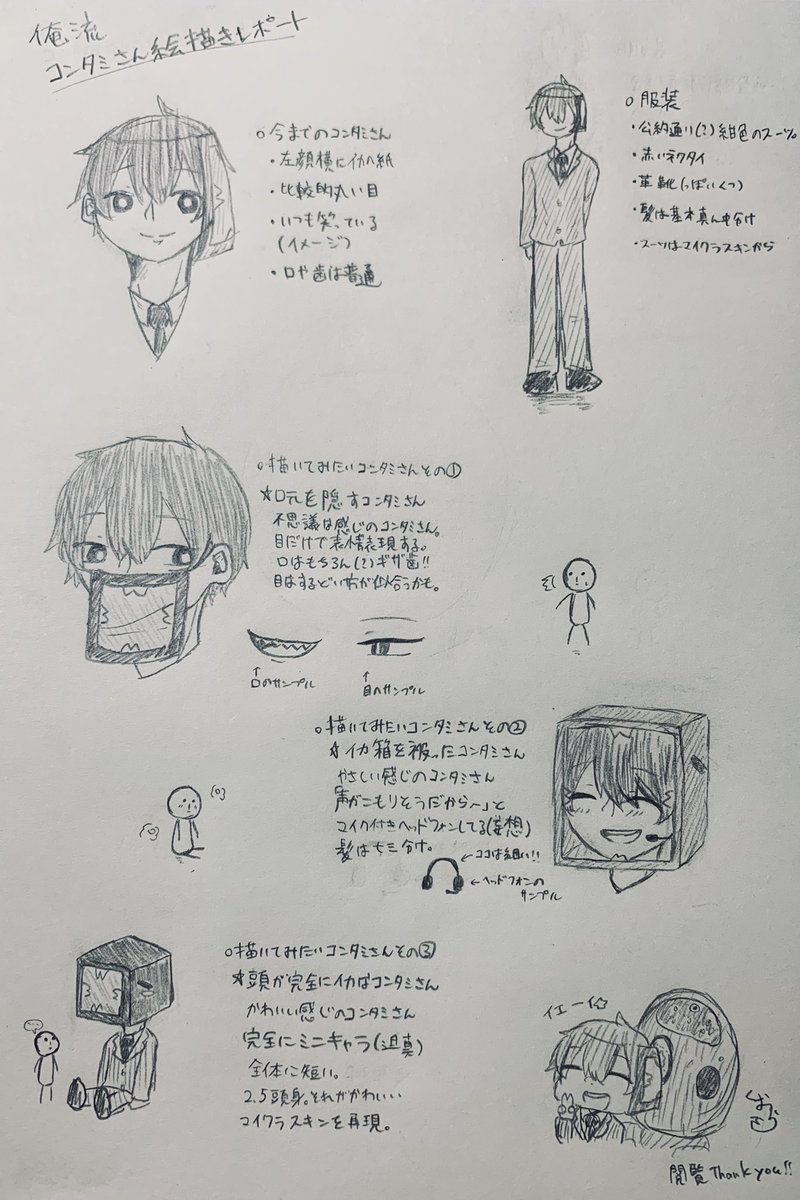 俺流
コンタミさん絵描きレポート
○今までのコンタミさん
・左顔横にイカの紙
・比較的丸い目
・いつも笑っている
(イメージ)
・口や歯は普通
○服装
・公約通り(?)紺色のスーツ。
・赤いネクタイ
・革靴(っぽいくつ)
・髪は基本真ん中分け
・スーツはマイクラスキンから
○描いてみたいコンタミさんその①
★口元を隠すコンタミさん
不思議な感じのコンタミさん。
目だけで表情表現する。
口はもちろん(?)ギザ歯!!
目はするどい方が似合うかも。
↑
口のサンプル
↑
目のサンプル
○描いてみたいコンタミさんその②
★イカ箱を被ったコンタミさん
やさしい感じのコンタミさん
「声がこもりそうだから〜」と
マイク付きヘッドフォンしてる(妄想)
髪は七三分け。
←ココは細い!!
←ヘッドフォンの
サンプル
○描いてみたいコンタミさんその③
★頭が完全にイカなコンタミさん
かわいい感じのコンタミさん
完全にミニキャラ(迫真)
全体に短い。
2.5頭身。それがかわいい
マイクラスキンを再現。
イエーイ☆
閲覧Thank you!!